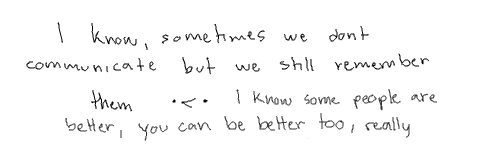 I know, sometimes we dont
communicate but we still remember
them •<• I know some people are
better, you can be better too, really